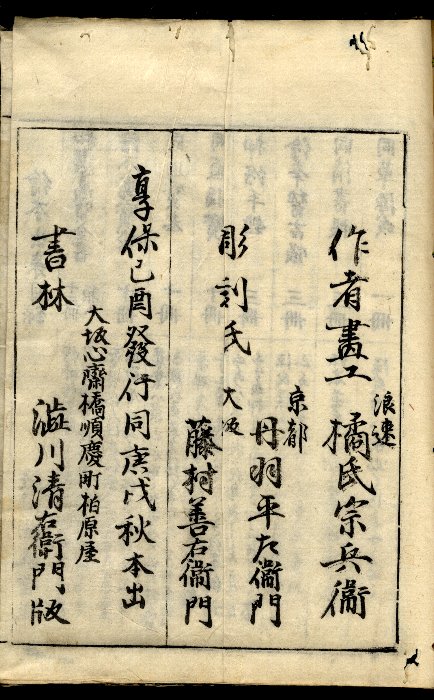 作者畫工 浪速 橘氏宗兵衞
彫刻氏 京都 丹羽平左衞門
大坂 藤村善右衞門
享保己酉發行同庚戌秋本出
大坂心齋橋順慶町柏原屋
書林 澁川清右衞門版